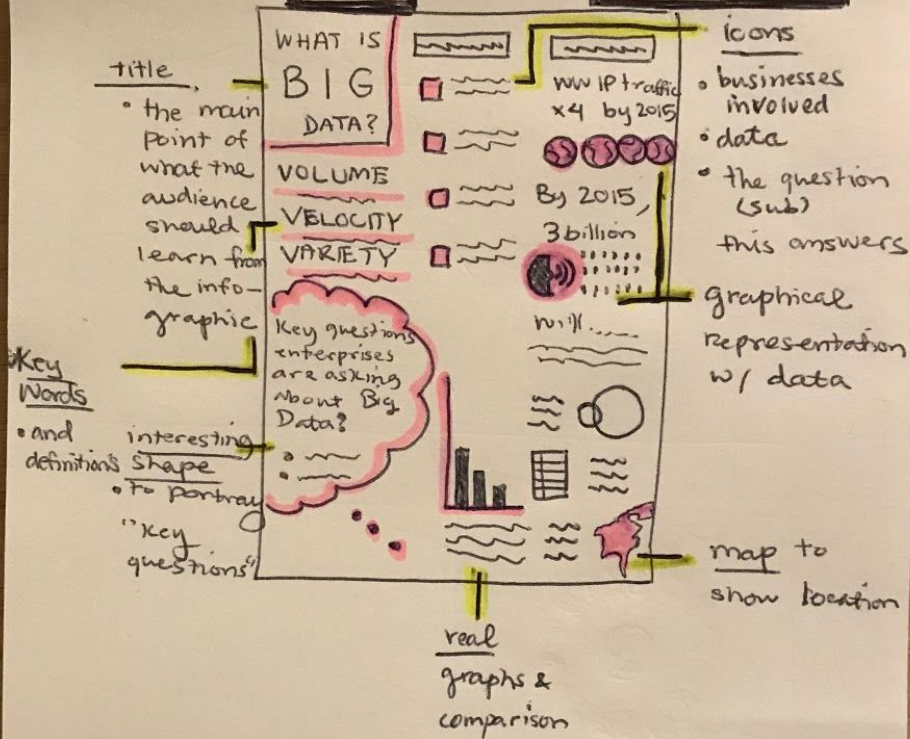 title
• the main
point of
what the
audience
should
learn from
the info-
graphic
Key
Words
• and
definitions
interesting
shape
• to portray
"key
questions"
WHAT IS
BIG
DATA?
VOLUME
VELOCITY
VARIETY
Key questions
enterprises
are asking
about Big
Data?
WW IP traffic
x4 by 2015
By 2015,
3 billion
will.....
icons
• businesses
involved
• data
• the question
(sub)
this answers
graphical
representation
w/ data
map to
show location
real
graphs &
comparison